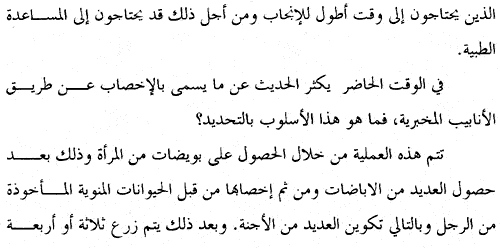 الذين يحتاجون إلى وقت أطول للإنجاب ومن أجل ذلك قد يحتاجون إلى المساعدة
الطبية.
في الوقت الحاضر يكثر الحديث عن ما يسمى بالإخصاب عن طريق
الأنابيب المخبرية، فما هو هذا الأسلوب بالتحديد؟
تتم هذه العملية من خلال الحصول على بويضات من المرأة وذلك بعد
حصول العديد من الاباضات ومن ثم إخصابها من قبل الحيوانات المنوية المأخوذة
من الرجل وبالتالي تكوين العديد من الأجنة. وبعد ذلك يتم زرع ثلاثة أو أربعة